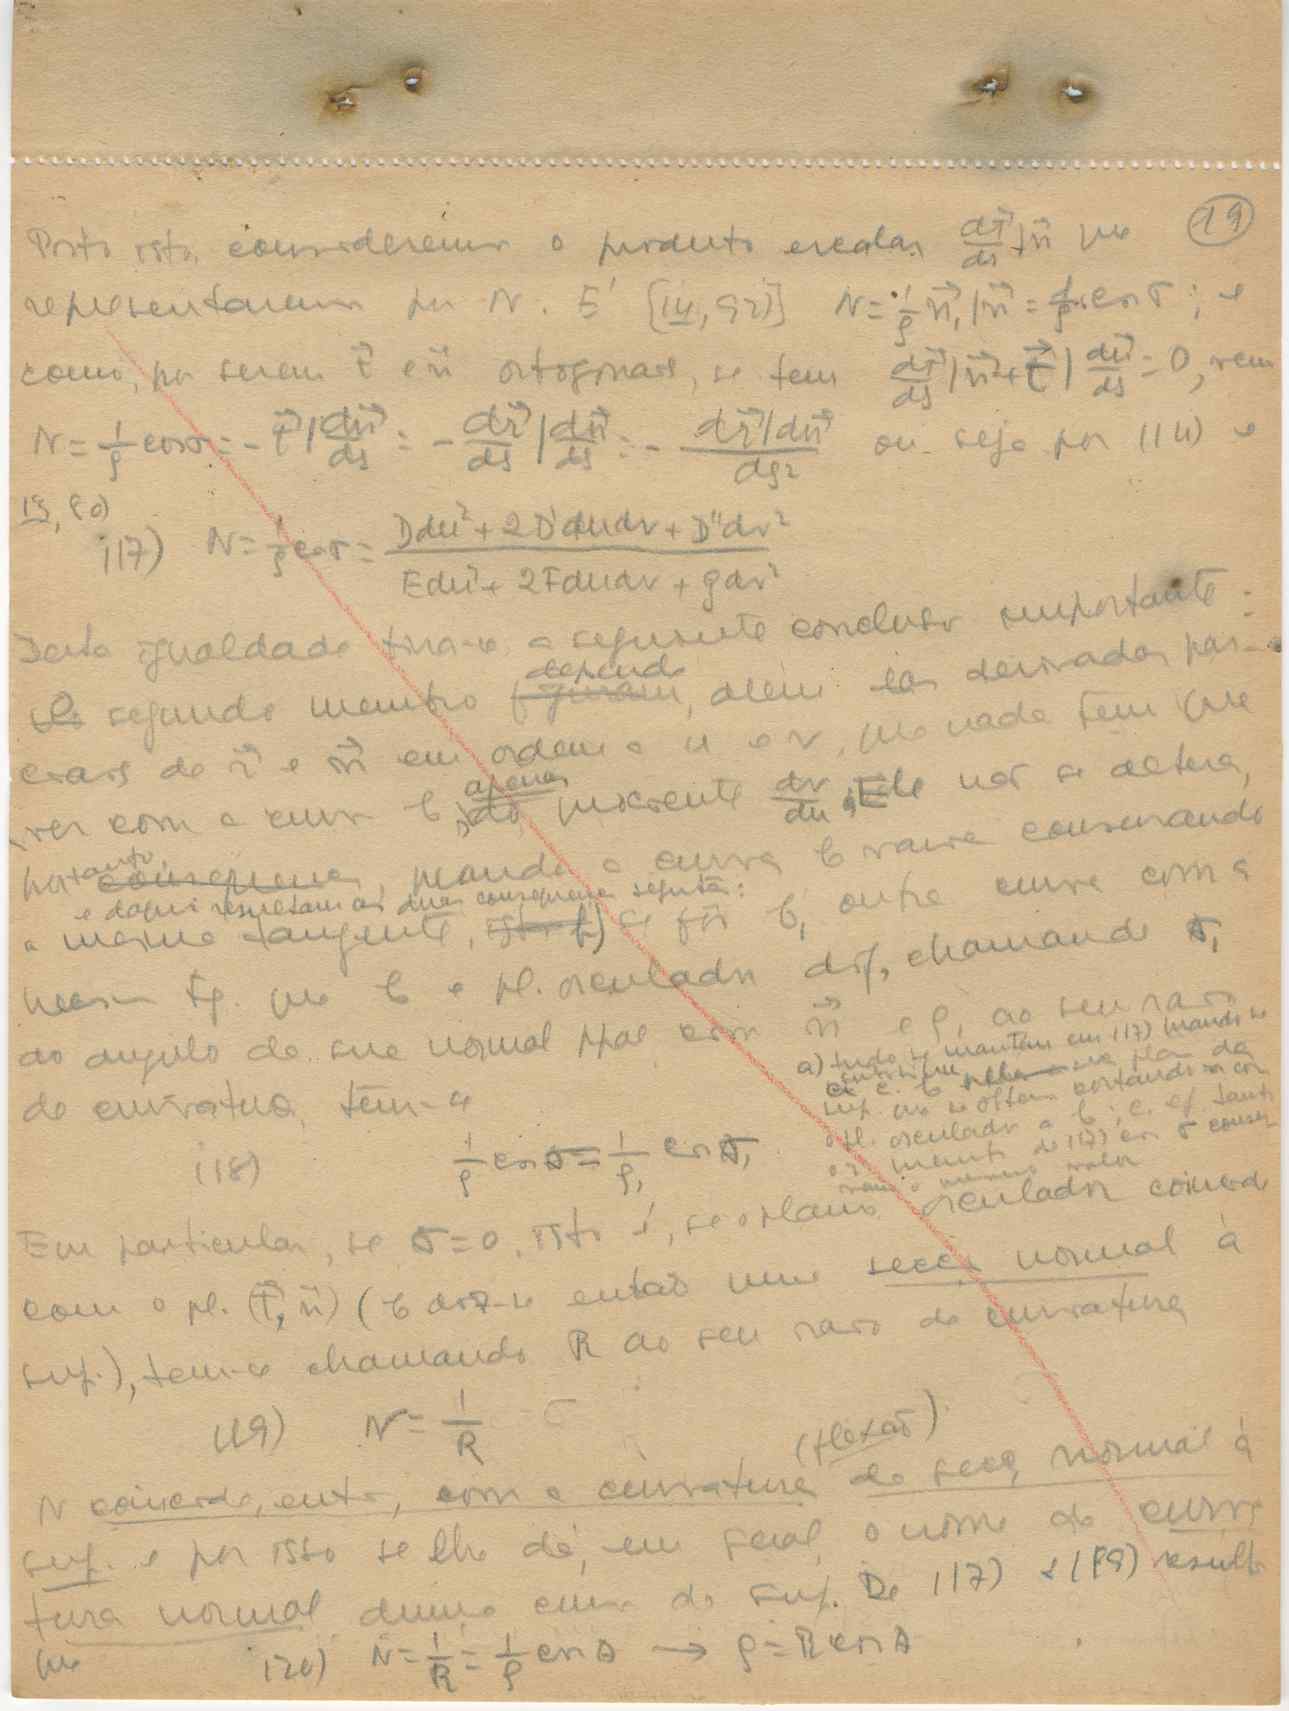 19
Posto isto, consideremos o produto escalar dt⃗/ds | n⃗ que
representaremos por N. E' [14, 92)] N = 1/ρ n⃗₁ | n⃗ = 1/ρ cos σ ; e
como, por serem t⃗ e n⃗ ortogonais, se tem dt⃗/ds | n⃗ + t⃗ | dn⃗/ds = 0, vem
N = 1/ρ cos σ = - t⃗ | dn⃗/ds = - dr⃗/ds | dn⃗/ds = - dr⃗ | dn⃗ / ds² ou seja por 114) e
13, 80)
117) N = 1/ρ cos σ = Ddu² + 2D'dudv + D''dv² / Edu² + 2Fdudv + Gdv²
Desta igualdade tira-se a seguinte conclusão importante:
segundo membro figuram, depende, além das derivadas par-
ciais de r⃗ e n⃗ em ordem a u e v, que nada têm que
ver com a curva C, apenas do quociente dv/du. Ele não se altera,
portanto, consequencia, quando a curva C varia conservando
e daqui resultam as duas consequencias seguintes:
a mesma tangente, se fôr C₁ outra curva com a
mesma tg. que C e pl. osculador dif., chamando σ₁
ao angulo da sua normal ppal com n⃗ e ρ₁ ao seu raio
de curvatura, tem-se
a) tudo se mantem em 117) quando se
substitue a c. C pla plan da
sup. que se obtem cortando-a com
o pl. osculador a C; c. ef. tanto
o 2º membro de 117) como σ conser-
vam o mesmo valor
118) 1/ρ cos σ = 1/ρ₁ cos σ₁
Em particular, se σ = 0, isto é, se o plano osculador coincide
com o pl. (t⃗, n⃗) (C diz-se então uma secção normal à
sup.), tem-se chamando R ao seu raio de curvatura
119) N = 1/R
(flexão)
N coincide, então, com a curvatura da secção normal à
sup. e por isso se lhe dá, em geral, o nome de curva-
tura normal duma curva da sup. De 117) e 119) resulta
que 120) N = 1/R = 1/ρ cos σ → ρ = R cos σ